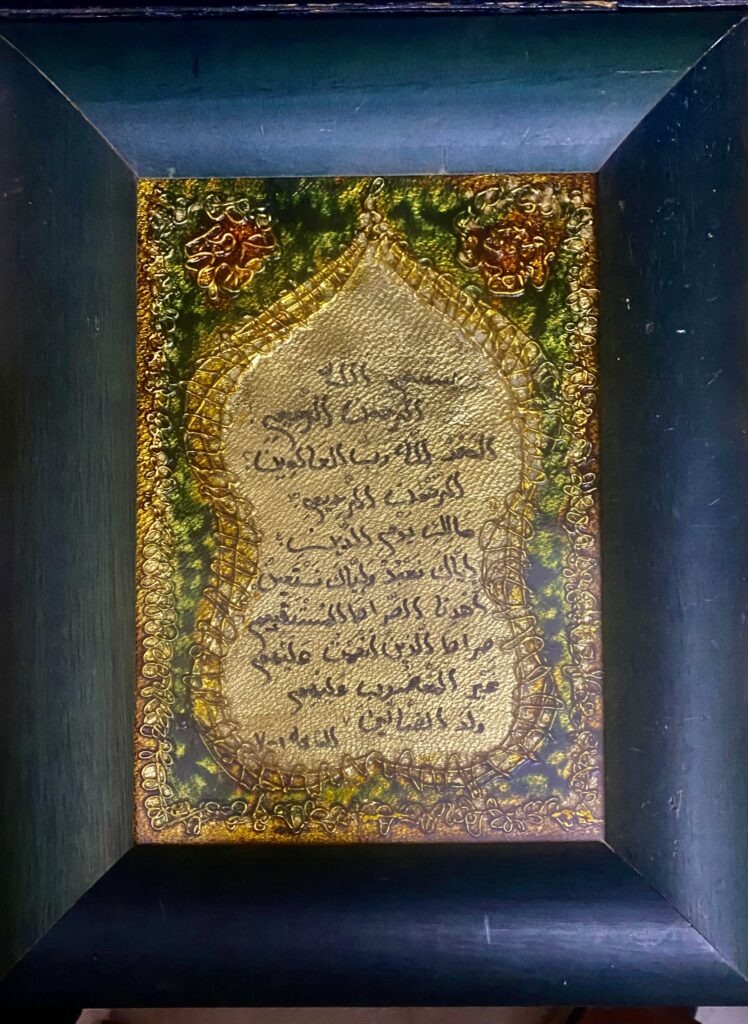 بسم الله
الرحمن الرحيم
الحمد لله رب العالمين
الرحمن الرحيم
مالك يوم الدين
إياك نعبد وإياك نستعين
اهدنا الصراط المستقيم
صراط الذين انعمت عليهم
غير المغضوب عليهم
ولا الضالين
الفاتحة ١-٧